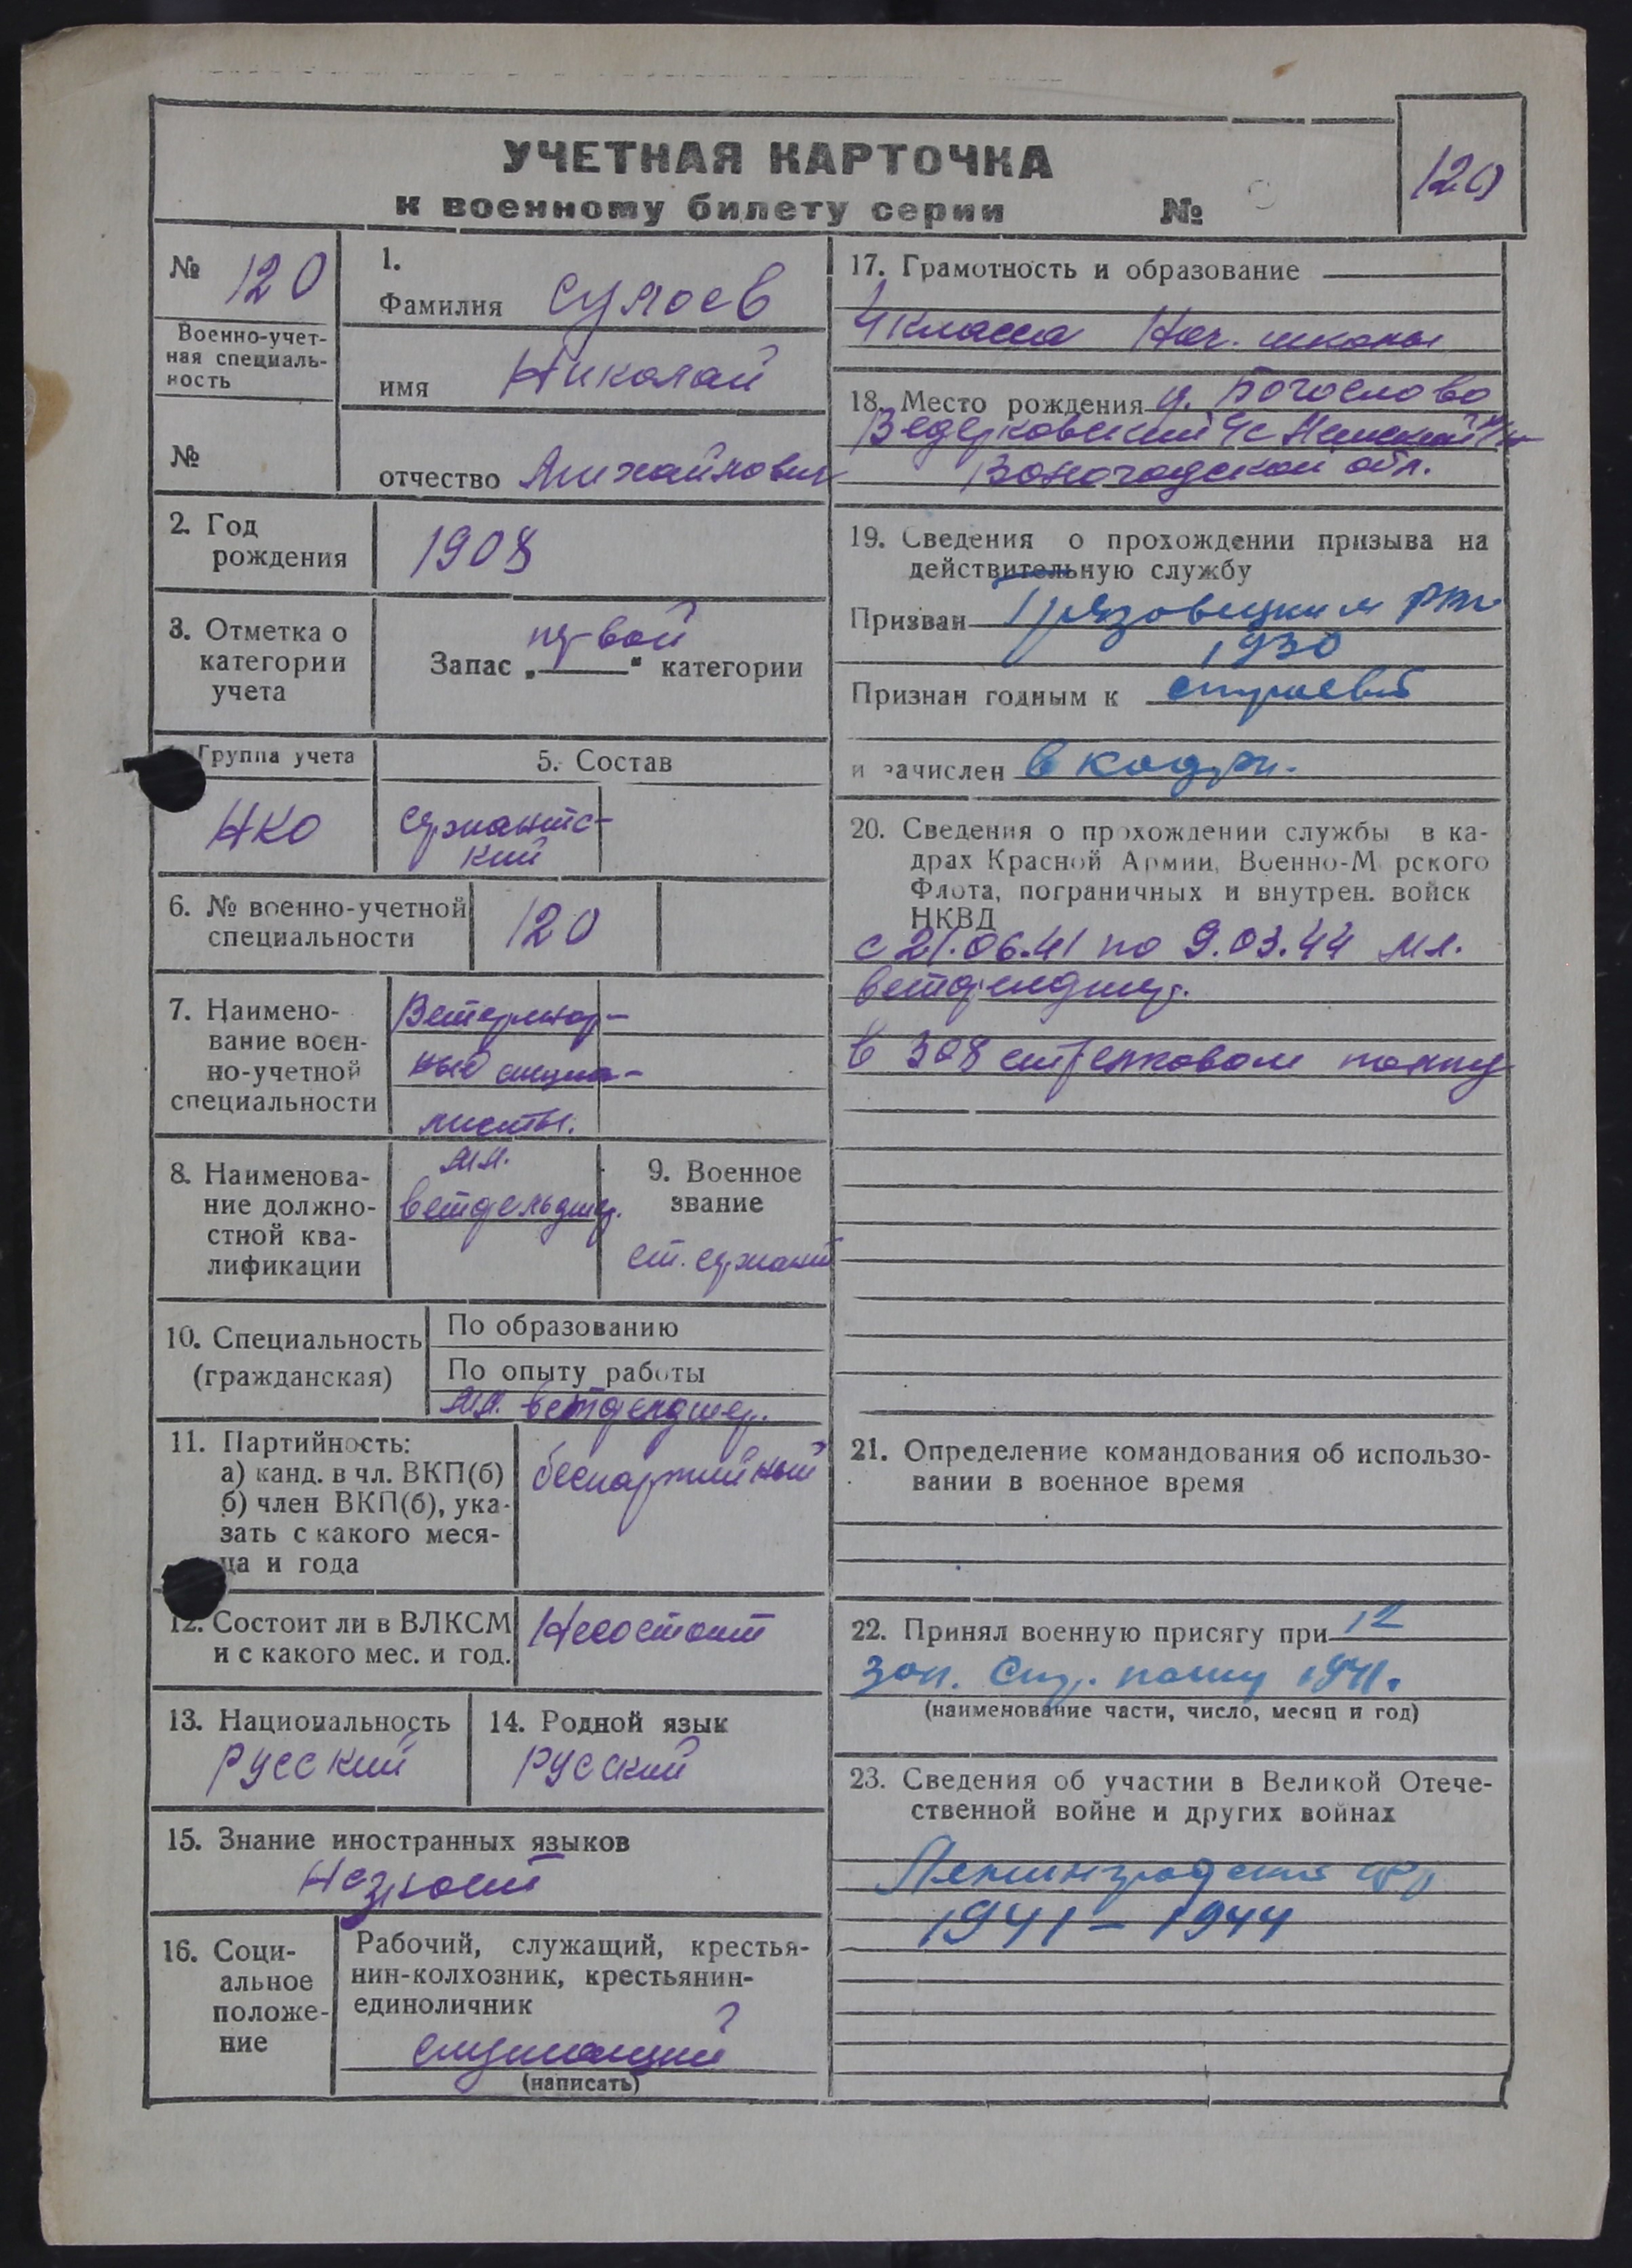 УЧЕТНАЯ КАРТОЧКА
к военному билету серии №
120
№ 120
Военно-учет-
ная специаль-
ность
№
1.
Фамилия Суяоев
имя Николай
отчество Михайлович
2. Год
рождения
1908
3. Отметка о
категории
учета
Запас „первой“ категории
Группа учета
НКО
5. Состав
сержантс-
кий
6. № военно-учетной
специальности
120
7. Наимено-
вание воен-
но-учетной
специальности
Ветеринар-
ные специа-
листы.
8. Наименова-
ние должно-
стной ква-
лификации
мл.
ветфельдшер.
9. Военное
звание
ст. сержант
10. Специальность
(гражданская)
По образованию
По опыту работы
мл. ветфельдшер.
11. Партийность:
а) канд. в чл. ВКП(б)
б) член ВКП(б), ука-
зать с какого меся-
ца и года
беспартийный
12. Состоит ли в ВЛКСМ
и с какого мес. и год.
Несостоит
13. Национальность
русский
14. Родной язык
русский
15. Знание иностранных языков
Незнает
16. Соци-
альное
положе-
ние
Рабочий, служащий, крестья-
нин-колхозник, крестьянин-
единоличник
служащий
(написать)
17. Грамотность и образование
4 класса Нач. школы
18. Место рождения д. Богослово
Ведерковский с/с
Вологодской обл.
19. Сведения о прохождении призыва на
действительную службу
Призван Грязовецким РВК
1930
Признан годным к строевой
и зачислен в кадры.
20. Сведения о прохождении службы в ка-
драх Красной Армии, Военно-М рского
Флота, пограничных и внутрен. войск
НКВД
с 21.06.41 по 9.03.44 мл.
ветфелдшер.
в 308 стрелковом полку
21. Определение командования об использо-
вании в военное время
22. Принял военную присягу при 12
зап. стр. полку 1941.
(наименование части, число, месяц и год)
23. Сведения об участии в Великой Отече-
ственной войне и других войнах
Ленинградский фр
1941 – 1944